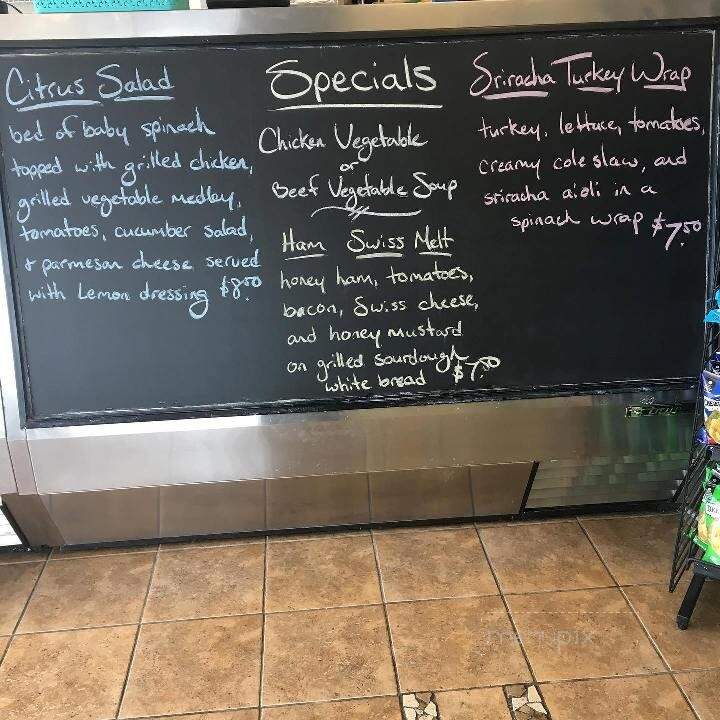 Citrus Salad
bed of baby spinach
topped with grilled chicken,
grilled vegetable medley,
tomatoes, cucumber salad,
+ parmesan cheese served
with Lemon dressing $8.50
Specials
Chicken Vegetable
or
Beef Vegetable Soup
Ham Swiss Melt
honey ham, tomatoes,
bacon, Swiss cheese,
and honey mustard
on grilled sourdough
white bread $7.50
Sriracha Turkey Wrap
turkey, lettuce, tomatoes,
creamy coleslaw, and
sriracha aioli in a
spinach wrap $7.50